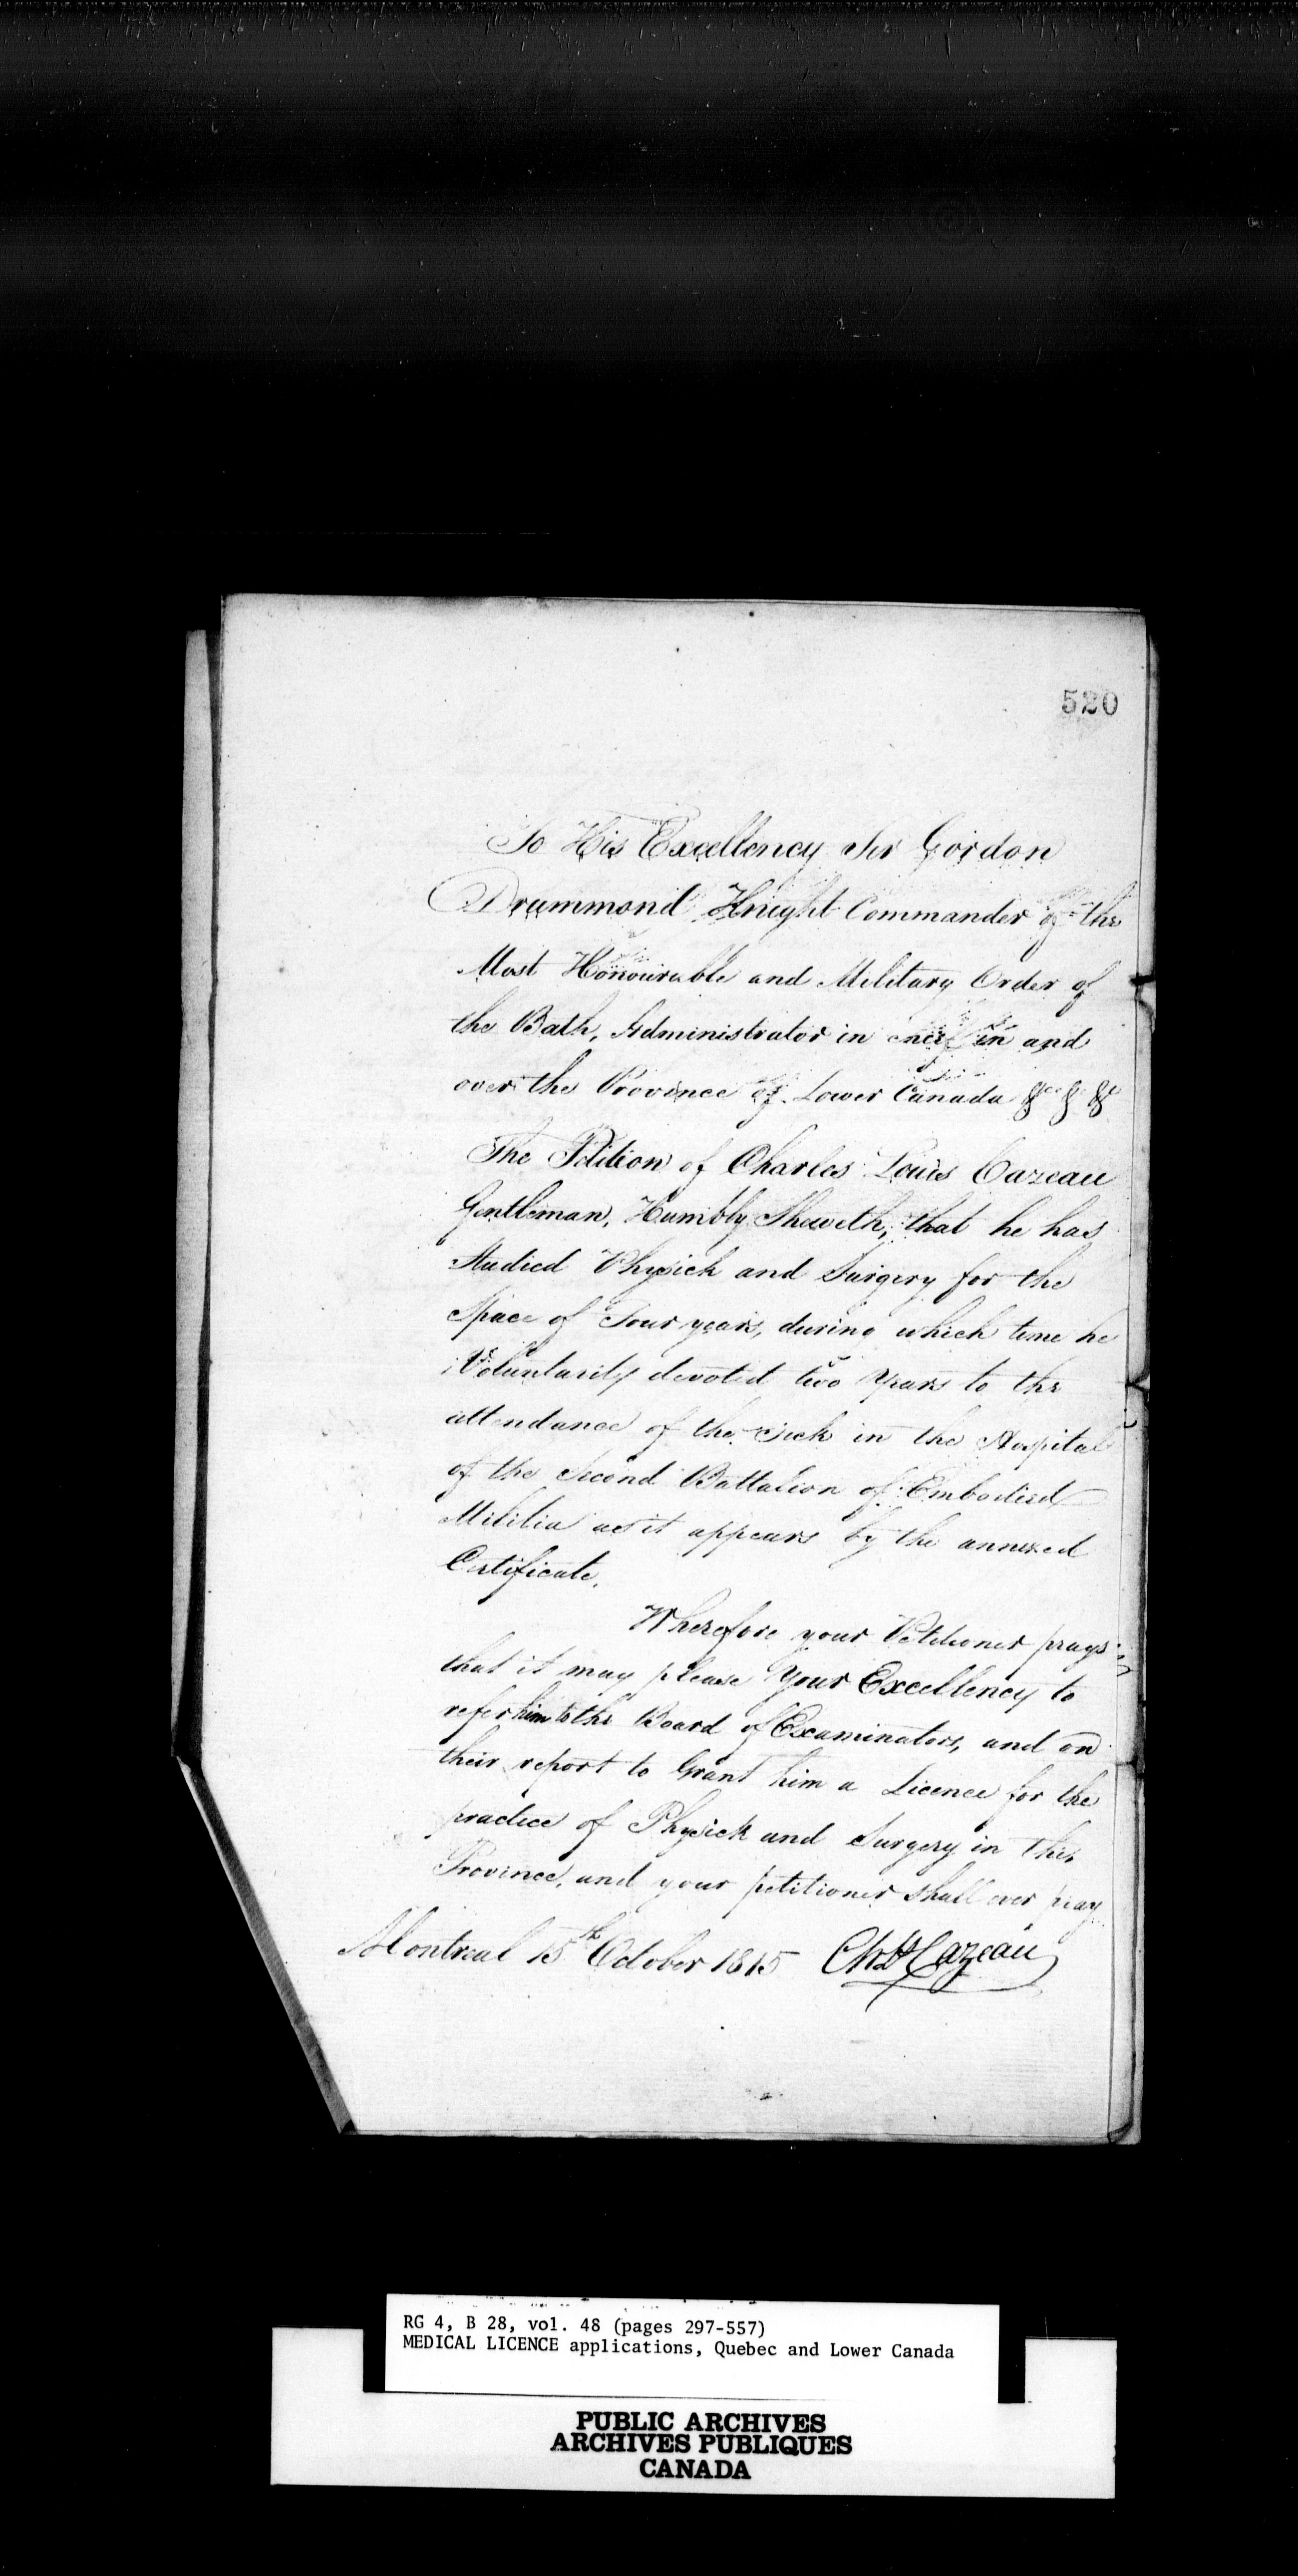 520
To His Excellency Sir Gordon
Drummond Knight Commander of the
Most Honourable and Military Order of
the Bath, Administrator in in and
over the Province of Lower Canada &c & &c
The Petition of Charles Louis Cazeau
Gentleman, Humbly Sheweth, that he has
Studied Physick and Surgery for the
Space of Four years, during which time he
Voluntarily devoted two Years to the
attendance of the sick in the Hospital
of the Second Battalion of Embodied
Militia as it appears by the annexed
Certificate.
Wherefore your Petitioner prays
that it may please Your Excellency to
refer him to the Board of Examinators, and on
their report to Grant him a Licence for the
practice of Physick and Surgery in this
Province, and your petitioner shall ever pray
Montreal 15th October 1815 Chs Ls Cazeau
RG 4, B 28, vol. 48 (pages 297-557)
MEDICAL LICENCE applications, Quebec and Lower Canada
PUBLIC ARCHIVES
ARCHIVES PUBLIQUES
CANADA